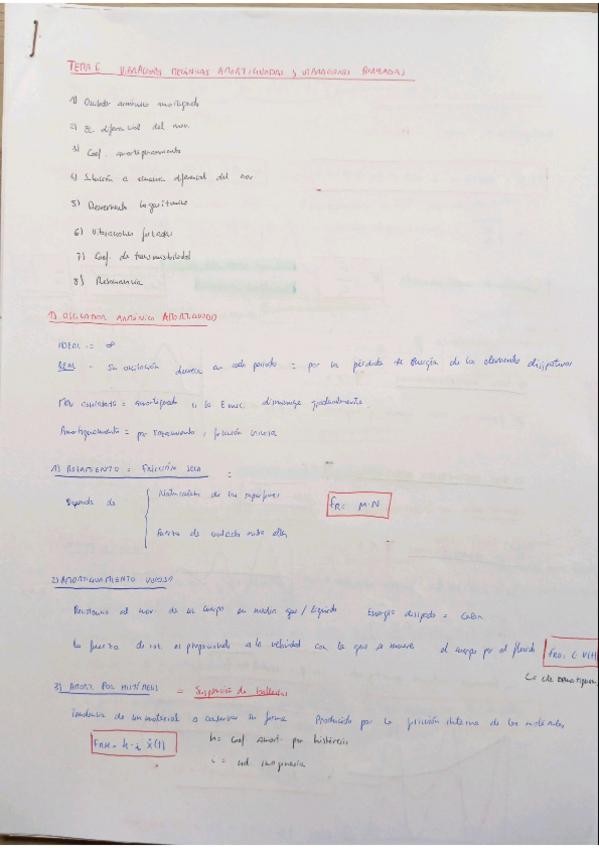 TEMA 6 VIBRACIONES MECÁNICAS AMORTIGUADAS y VIBRACIONES FORZADAS
1) Oscilador armónico amortiguado
2) Ec. diferencial del mov.
3) Coef. amortiguamiento
4) Solución a ecuación diferencial del mov
5) Decremento logarítmico
6) Vibraciones forzadas
7) Coef. de transmisibilidad
8) Resonancia
1) OSCILADOR ARMÓNICO AMORTIGUADO
IDEAL = ∞
REAL - Su oscilación decrece en cada periodo = por la pérdida de Energía de los elementos disipativos
Mov oscilatorio = amortiguado si la E mec. disminuye gradualmente.
Amortiguamiento = por rozamiento, fricción
1) ROZAMIENTO = FRICCIÓN SECA :
Depende de
Naturaleza de las superficies
Fuerza de contacto entre ellas
FR = M·N
2) AMORTIGUAMIENTO VISCOSO
Resistencia al mov. de un cuerpo en medio gas/líquido Energía disipada = Calor
La fuerza de roz. es proporcional a la velocidad con la que se mueve el cuerpo por el fluido
3) AMORT. POR HISTÉRESIS = Suspensión de ballestas
Tendencia de un material a conservar su forma Producido por la fricción interna de las moléculas
h = Coef amort. por histéresis
i = ud. imaginaria